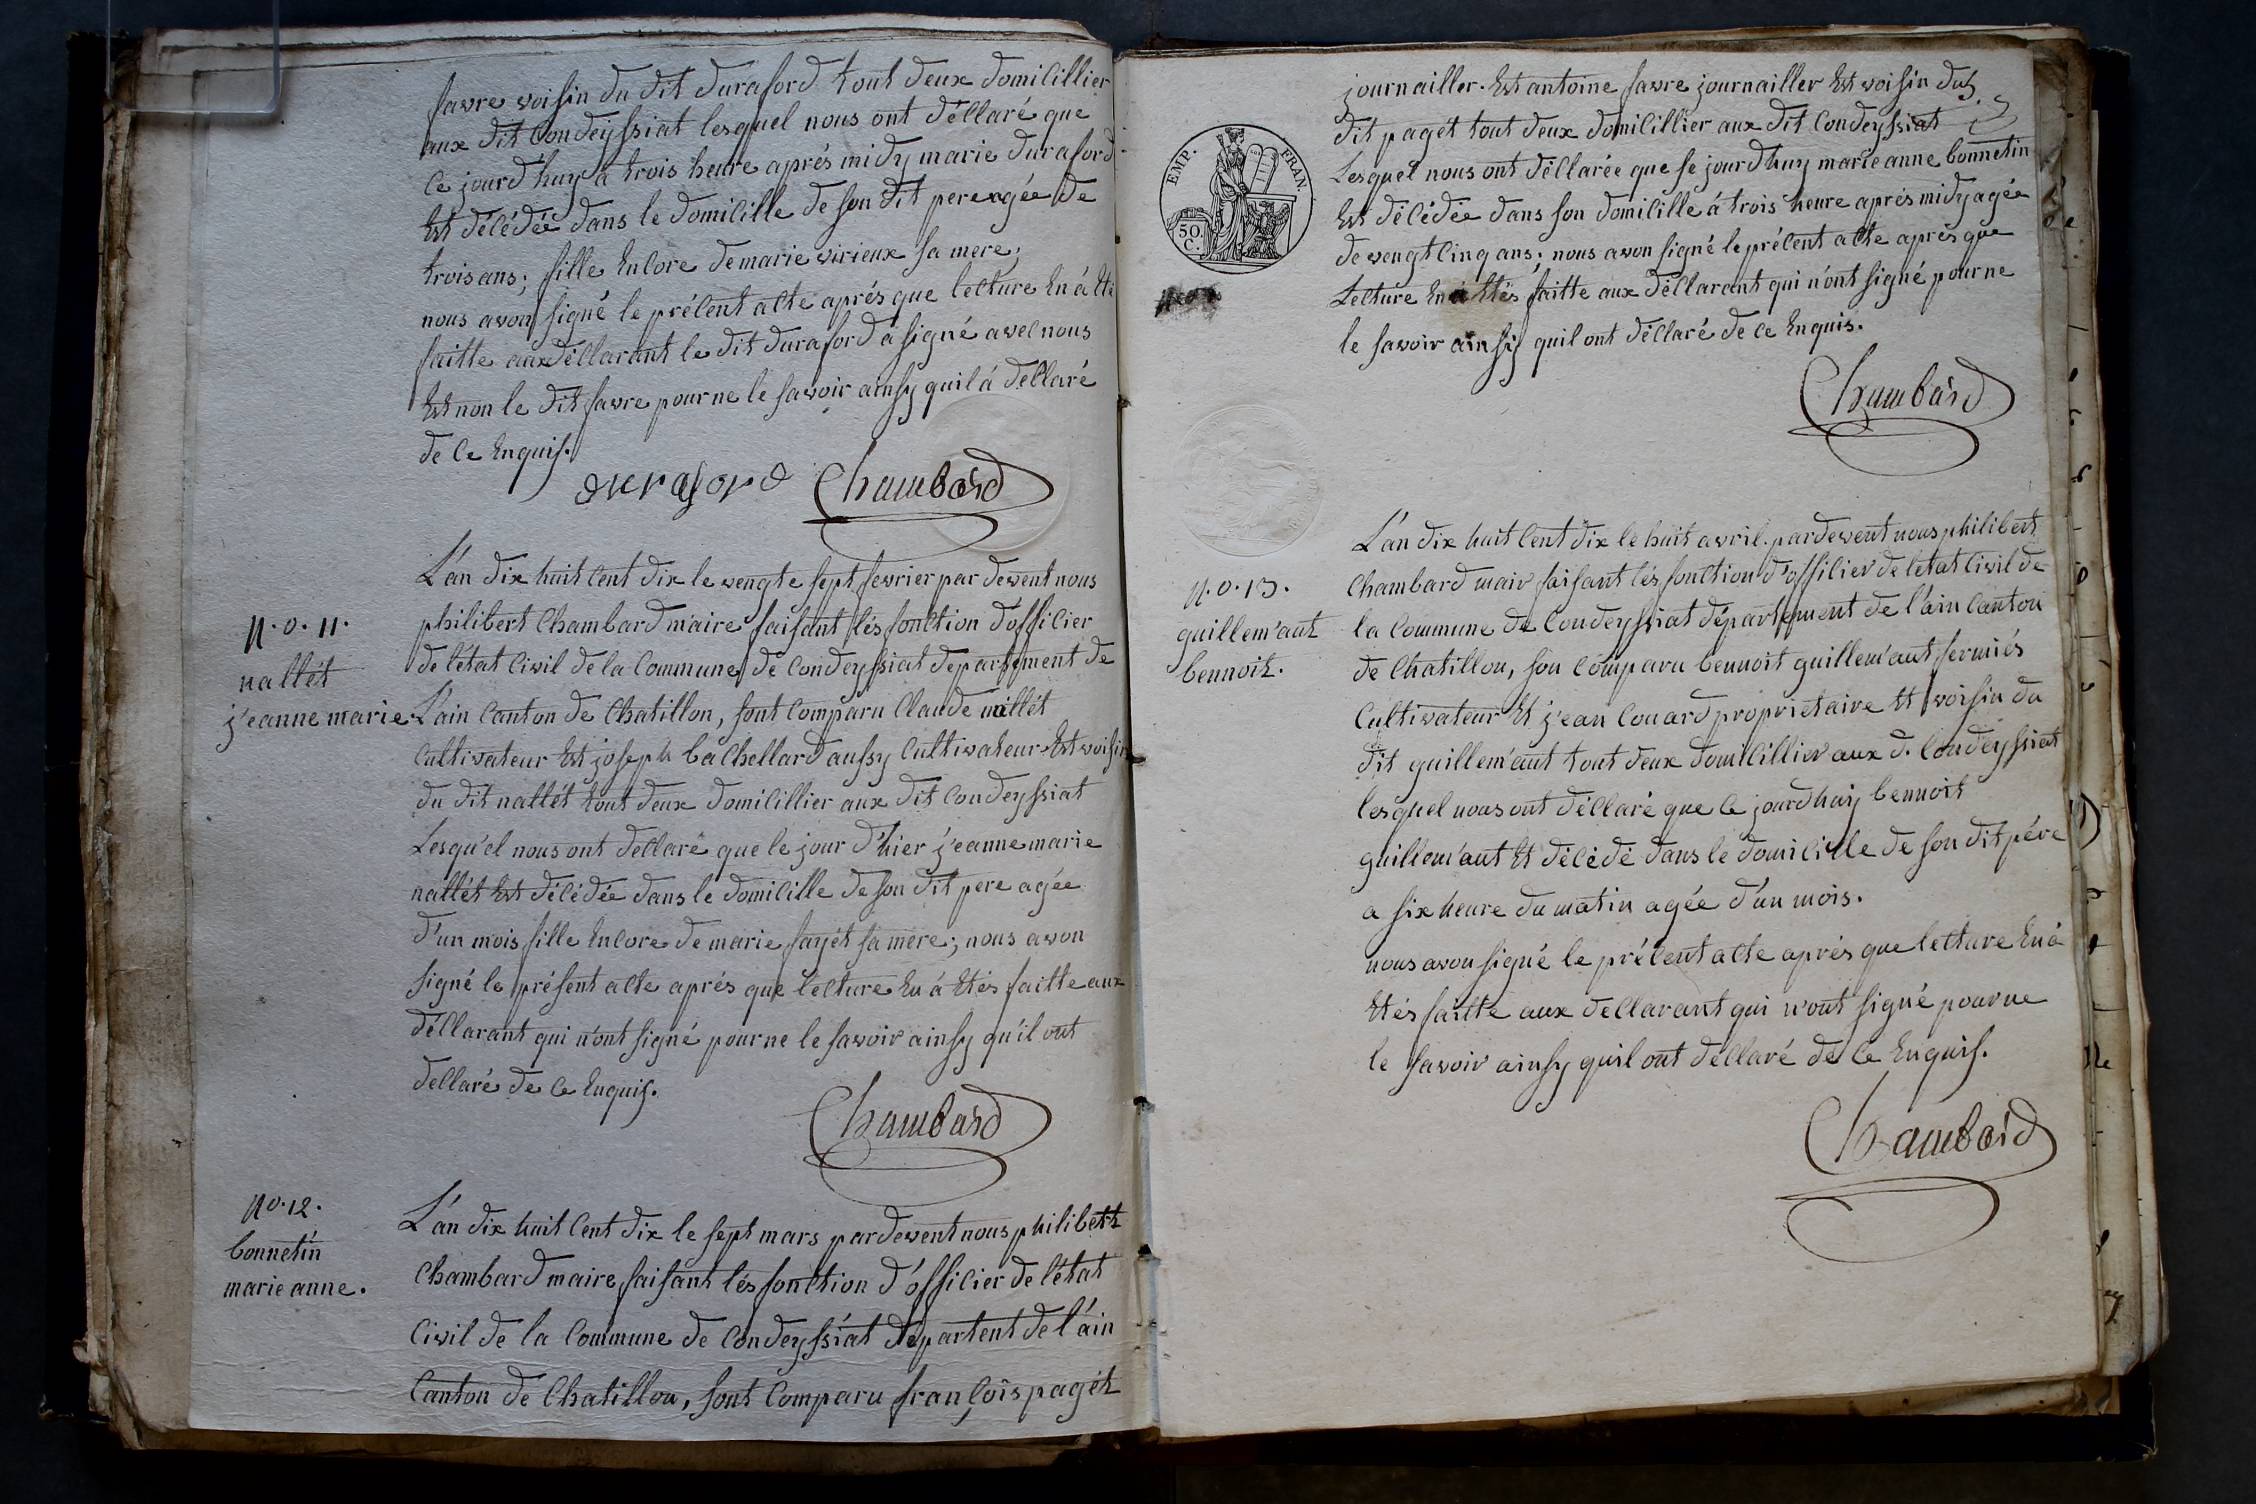 favre voisin du dit duraford tout deux domicillier
aux dit Condeyssiat lesquel nous ont déllaré que
Ce jourd'huy à trois heure aprés midy marie duraford
Est décédée dans le domicille de son dit pere agée de
trois ans; fille Encore de marie virieux sa mere;
nous avon signé le présent acte aprés que lecture En á Eté
faitte aux déclarant le dit duraford á signé avec nous
Est non le dit favre pour ne le savoir ainsy quil á declaré
de Ce Enquis.
duraford Chambard
N.o.11.
nallét
j'eanne marie
L'án dix huit Cent dix le vengte sept fevrier par devent nous
philibert Chambard maire faisant lés fonction d'officier
de l'état Civil de la Commune de Condeyssiat departement de
L'ain Canton de Chatillon, sont Comparu Claude nallét
Cultivateur Est joseph bachellard aussy Cultivateur Est voisin
du dit nallét tout deux domicillier aux dit Condeyssiat
Lesqu'el nous ont declaré que le jour d'hier j'eanne marie
nallét Est décédée dans le domicille de son dit pere agée
d'un mois fille Encore de marie fayét sa mere; nous avon
signé le présent acte aprés que lecture En á Etés faitte aux
déclarant qui n'ont signé pour ne le savoir ainsy qu'il ont
declaré de Ce Enquis.
Chambard
No.12.
bonnetin
marie anne.
L'án dix huit Cent dix le sept mars par devent nous philibert
Chambard maire faisant lés fonction d'officier de l'état
Civil de la Commune de Condeyssiat départent de l'áin
Canton de Chatillon, sont Comparu françois pagét
EMP. FRAN.
50.
C.
journailler. Est antoine favre journailler Est voisin du
dit pagét tout deux domicillier aux dit Condeyssiat
Lesquel nous ont déclarée que se jourd'huy marie anne bonnetin
Est décédée dans son domicille á trois heure aprés midy agée
de vengt Cinq ans; nous avon signé le présent acte aprés que
Lecture En á Etés faitte aux déclarant qui n'ont signé pour ne
le savoir ainsy quil ont déclaré de Ce Enquis.
Chambard
N.o.13.
guillem'aut
bennoit.
L'án dix huit Cent dix le huit avril par devent nous philibert
Chambard mair faisant lés fonction d'officier de letat Civil de
la Commune de Condeyssiat département de l'áin Canton
de Chatillon, son Comparu bennoit guillem'aut fermiés
Cultivateur Et j'ean Couard proprietaire Et voisin du
dit guillem'aut tout deux domicillier aux d. Condeyssiat
lesquel nous ont déclaré que Ce jourdhuy bennoit
guillem'aut Et décédé dans le domicille de son dit pére
a six heure du matin agée d'un mois.
nous avon signé le présent acte aprés que lecture En á
Etés faitte aux declarant qui n'ont signé pour ne
le savoir ainsy quil ont declaré de Ce Enquis.
Chambard